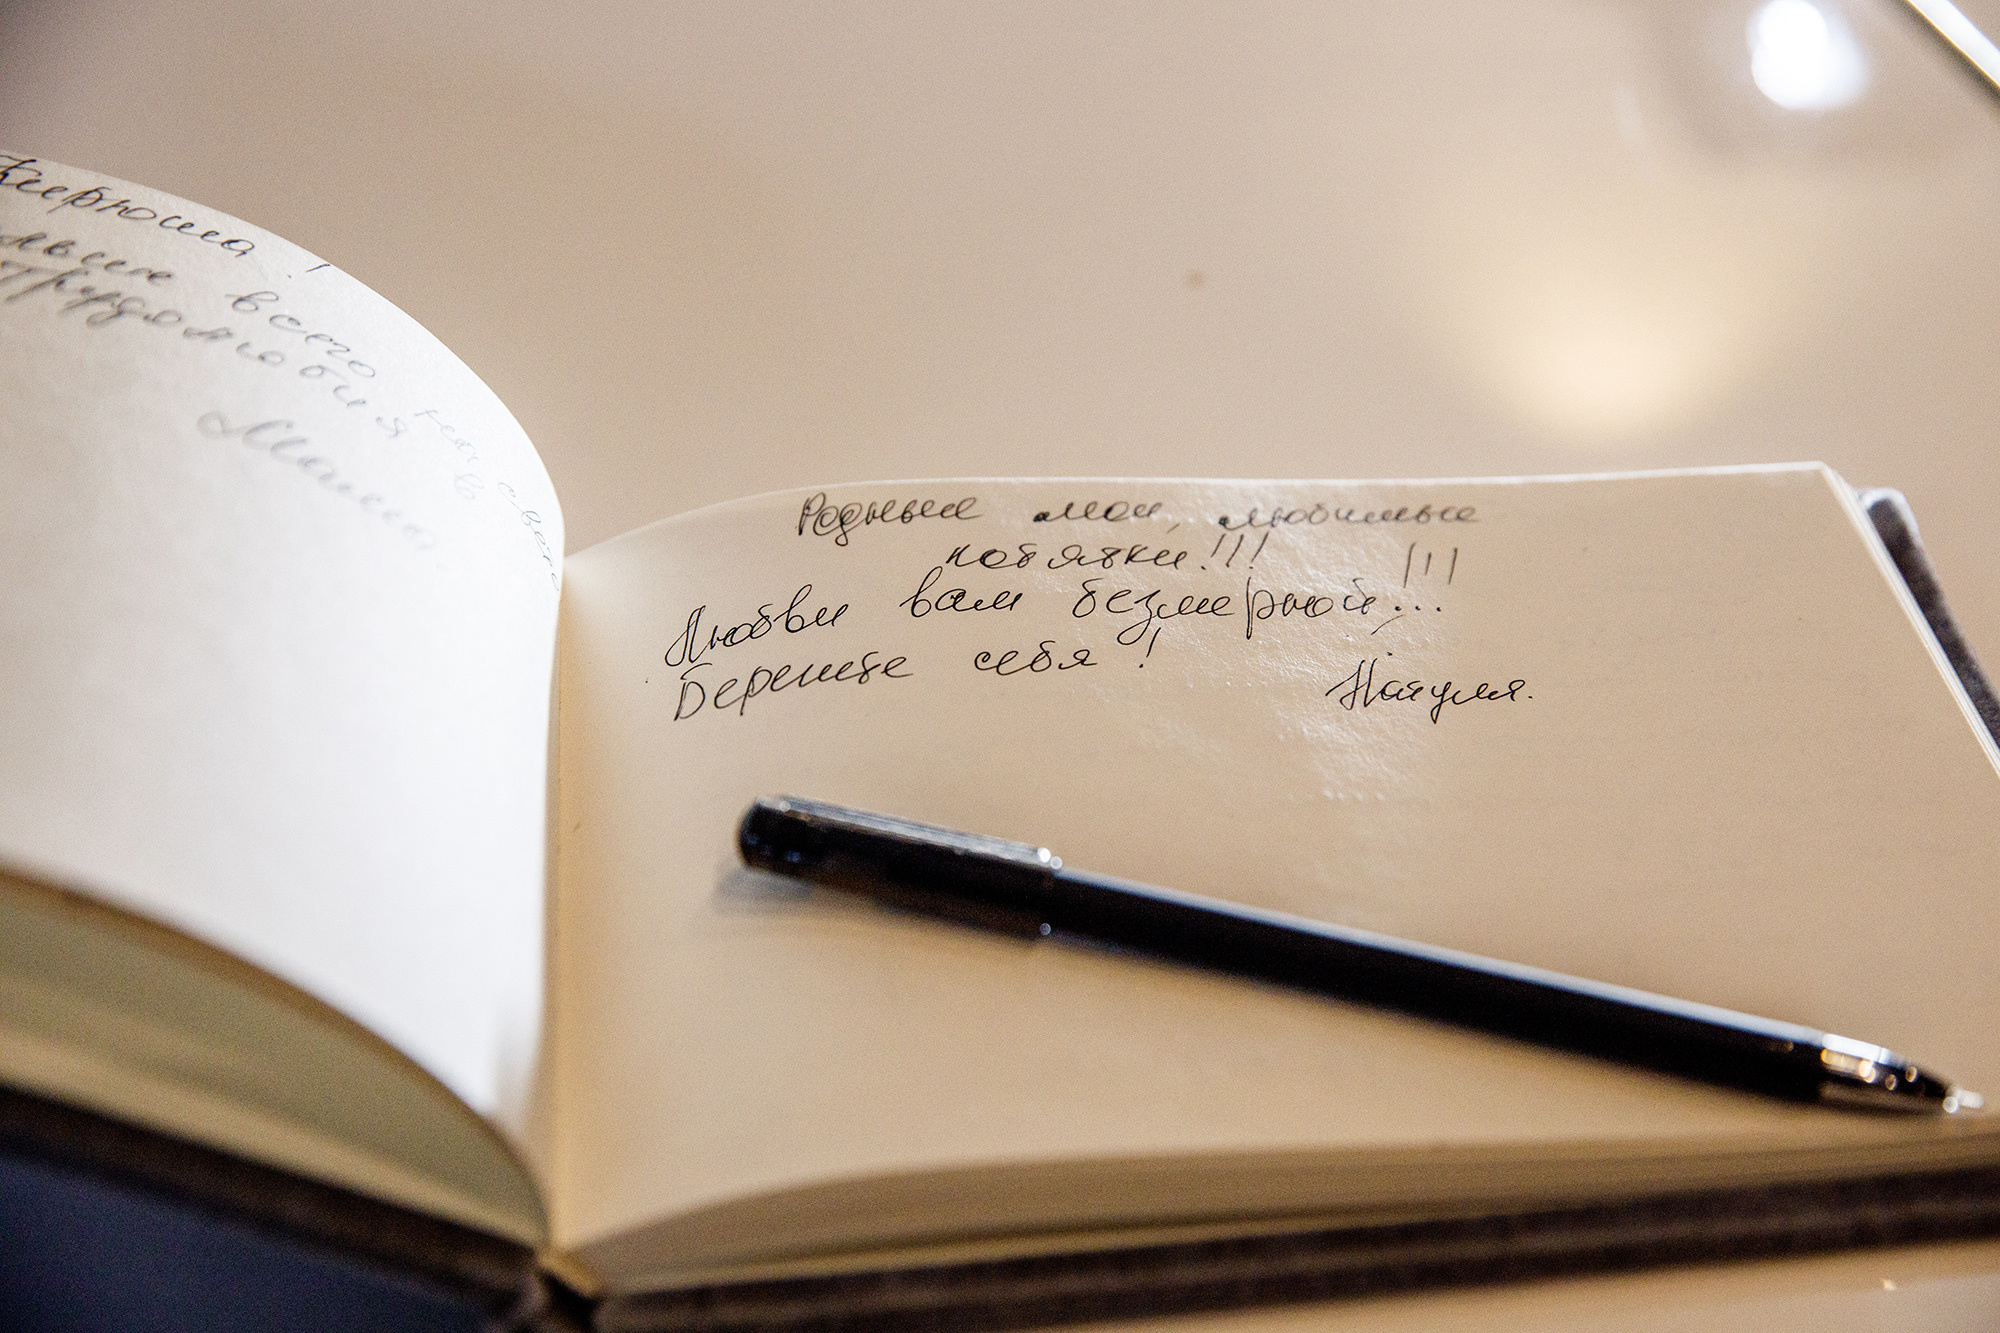 Кирюша!
больше всего на свете
Трудолюбия в
Мама
Родные мои, любимые
котятки!!!
Любви вам безмерной!!!...
Берегите себя!
Натуля.